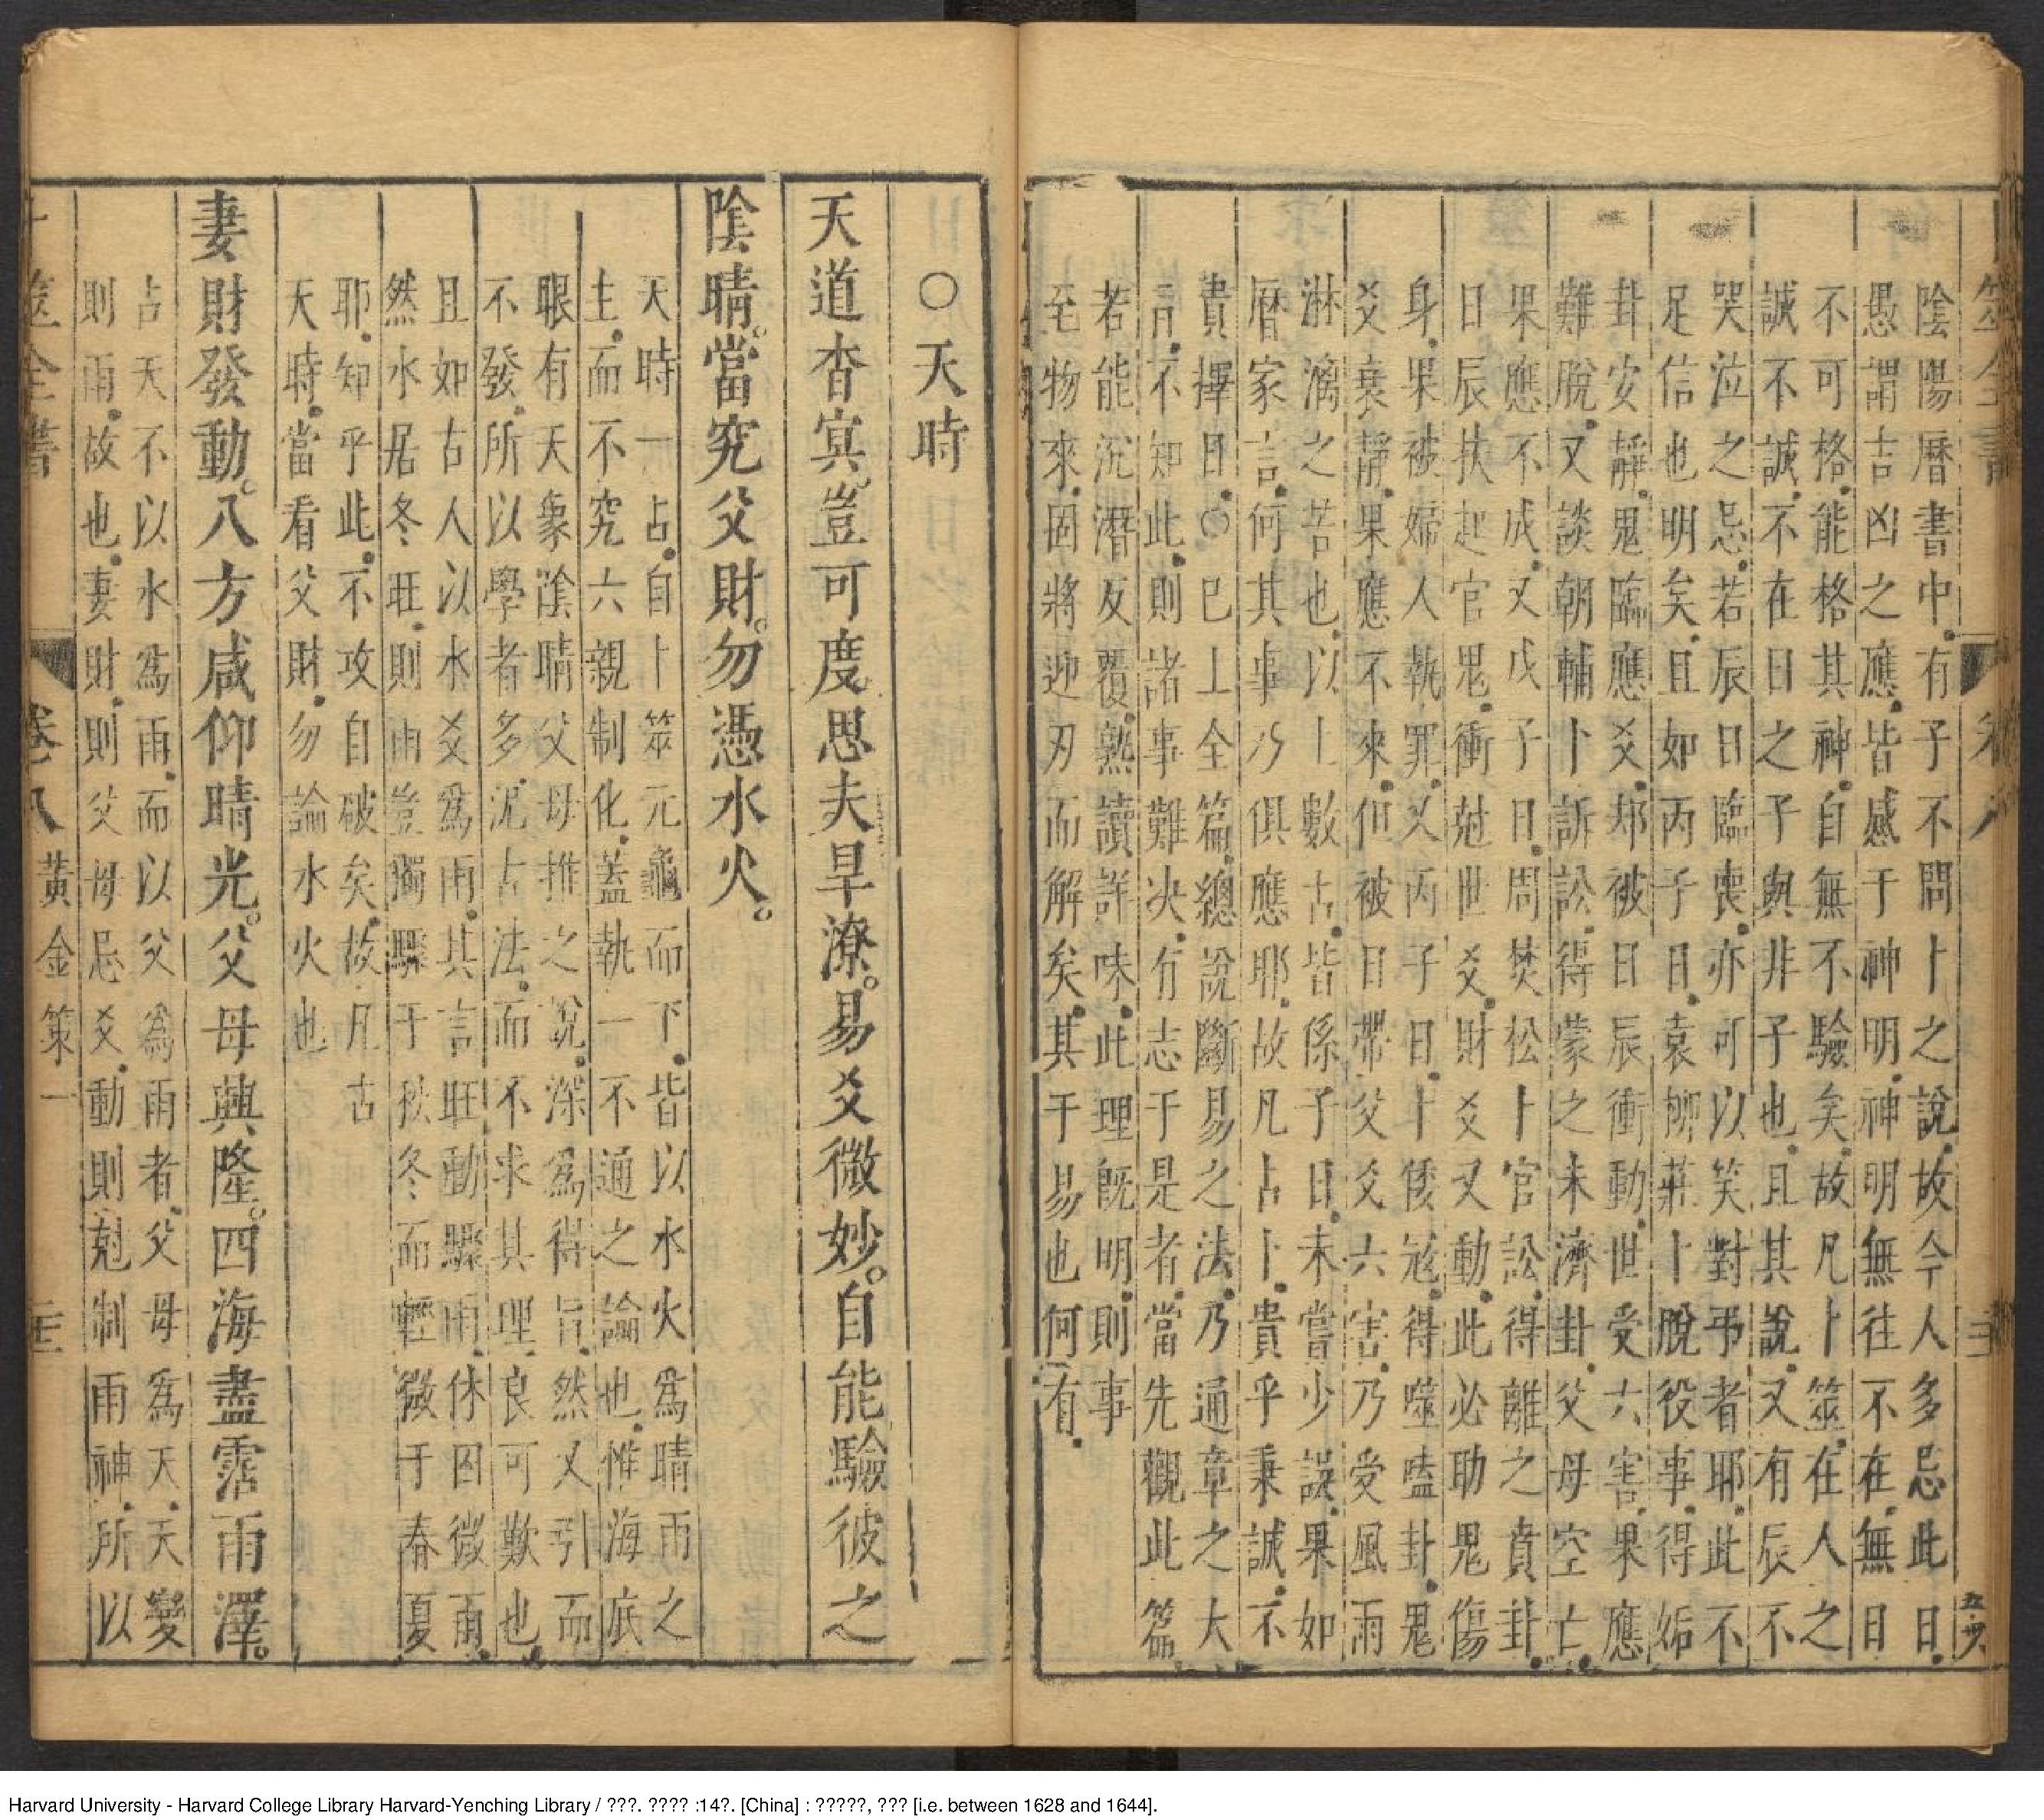 陰陽曆書中.有子不問卜之說.故今人多忌此日.
愚謂吉凶之應.皆感于神明.神明無往不在.無日
不可格.能格其神.自無不驗矣.故凡卜筮.在人之
誠不誠.不在日之子與非子也.且其說.又有辰不
哭泣之忌.若辰日臨喪.亦可以笑對弔者耶.此不
足信也明矣.且如丙子日.袁柳莊卜脫役事.得姤
卦安靜.鬼臨應爻.却被日辰衝動.世受六害.果應
難脫.又談朝輔卜訴訟.得蒙之未濟卦.父母空亡.
果應不成.又戊子日.周焚松卜官訟.得離之賁卦.
日辰扶起官鬼.衝尅世爻.財爻又動.此必助鬼傷
身.果被婦人執罪.又丙子日.卜倭寇.得噬嗑卦.鬼
爻衰靜.果應不來.但被日帶父爻六害.乃受風雨
淋漓之苦也.以上數占.皆係子日.未嘗少誤.果如
曆家言.何其事乃俱應耶.故凡占卜.貴乎秉誠.不
貴擇日.○巳上全篇.總說斷易之法.乃通章之大
言.不知此.則諸事難决.有志于是者.當先觀此篇
若能沉潛反覆.熟讀詳味.此理旣明.則事
至物來.固將迎刃而解矣.其于易也何有.
○天時
天道杳冥.豈可度思夫旱潦。易爻微妙。自能驗彼之
陰晴。當究父財。勿憑水火。
天時一占.自卜筮元龜而下.皆以水火爲晴雨之
主.而不究六親制化.蓋執一不通之論也.惟海底
眼有天象陰晴父母推之說.深爲得旨.然又引而
不發.所以學者多泥古法.而不求其理.良可歎也.
且如古人以水爻爲雨.其言旺動驟雨.休囚微雨.
然水居冬旺.則雨豈獨驟于秋冬.而輕微于春夏
耶.知乎此.不攻自破矣.故凡占
天時.當看父財.勿論水火也
妻財發動。八方咸仰晴光。父母興隆。四海盡霑雨澤。
占天不以水爲雨.而以父爲雨者.父母爲天.天變
則雨.故也.妻財.則父母忌爻.動則尅制雨神.所以
卜筮全書 卷八 黃金策一